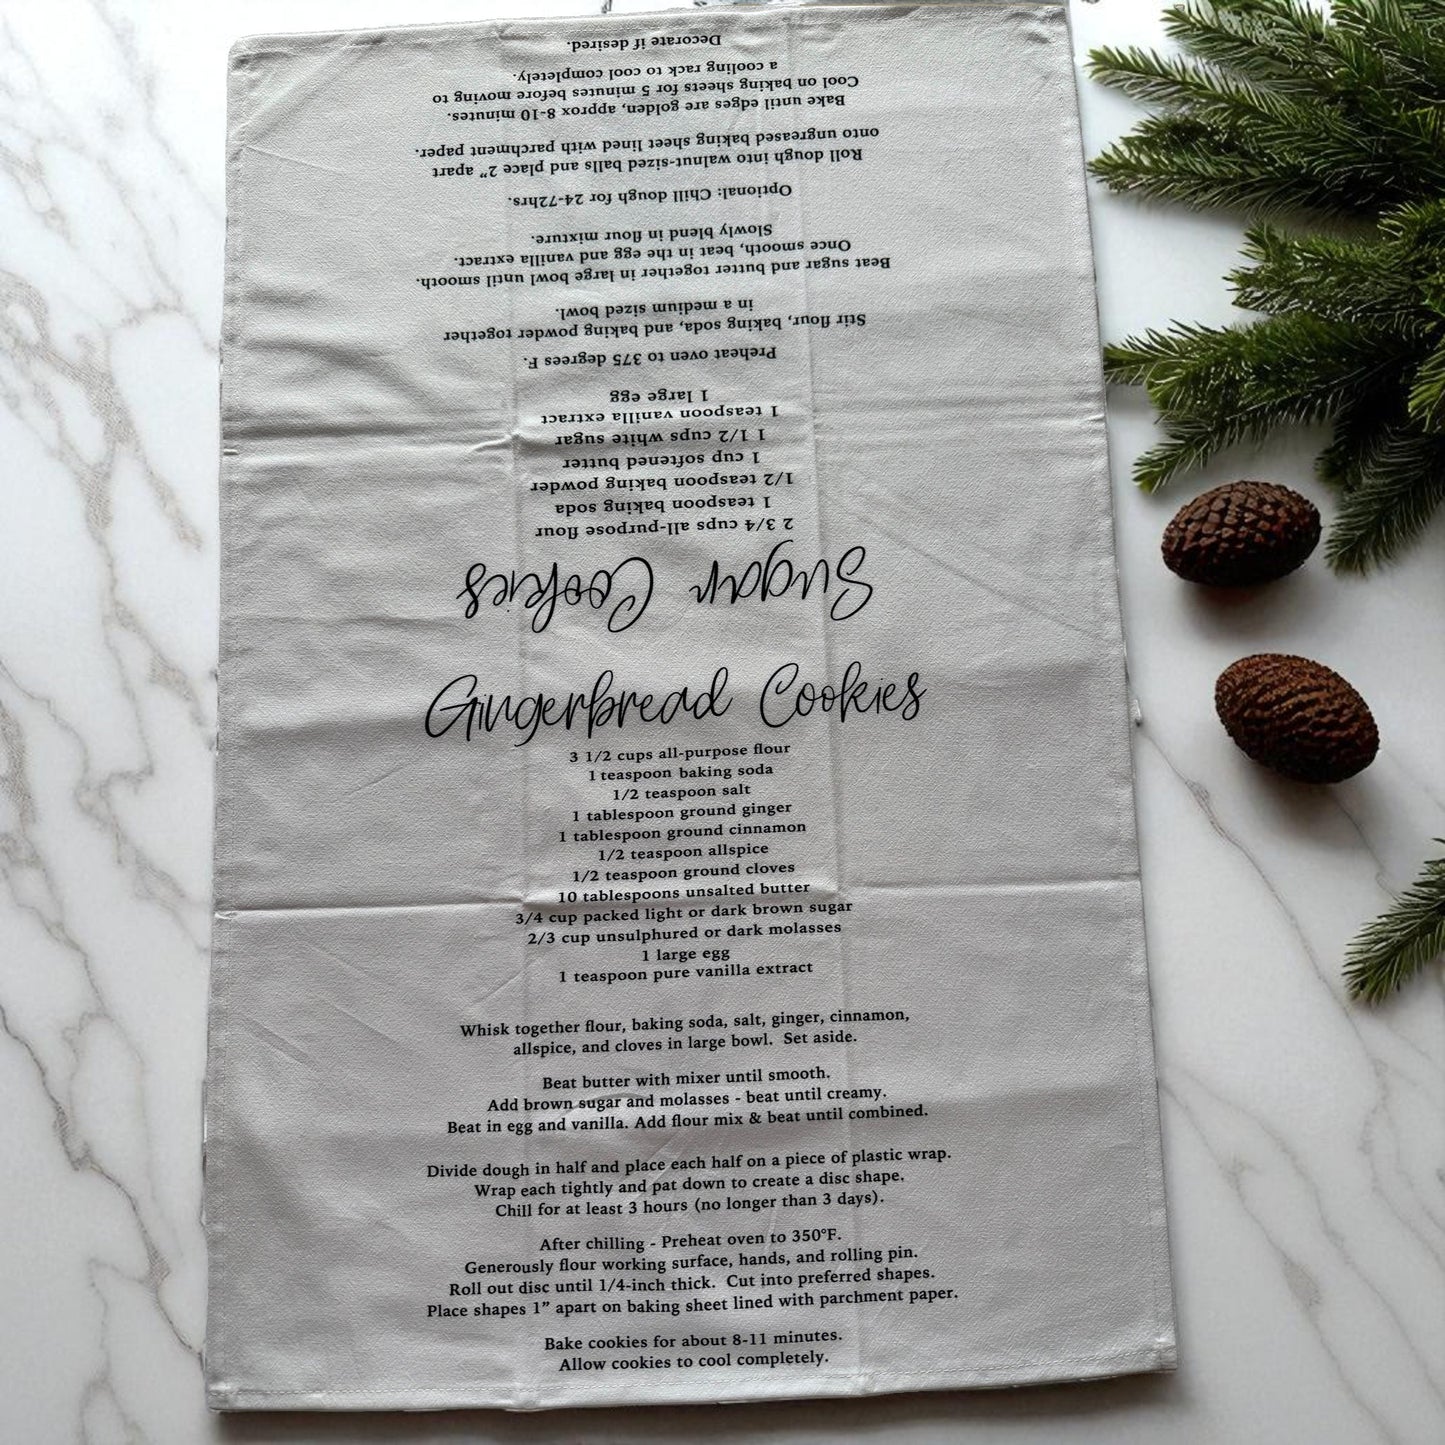 Sugar Cookies
2 3/4 cups all-purpose flour
1 teaspoon baking soda
1/2 teaspoon baking powder
1 cup softened butter
1 1/2 cups white sugar
1 teaspoon vanilla extract
1 large egg
Preheat oven to 375 degrees F.
Stir flour, baking soda, and baking powder together
in a medium sized bowl.
Beat sugar and butter together in large bowl until smooth.
Once smooth, beat in the egg and vanilla extract.
Slowly blend in flour mixture.
Optional: Chill dough for 24-72hrs.
Roll dough into walnut-sized balls and place 2” apart
onto ungreased baking sheet lined with parchment paper.
Bake until edges are golden, approx 8-10 minutes.
Cool on baking sheets for 5 minutes before moving to
a cooling rack to cool completely.
Decorate if desired.
Gingerbread Cookies
3 1/2 cups all-purpose flour
1 teaspoon baking soda
1/2 teaspoon salt
1 tablespoon ground ginger
1 tablespoon ground cinnamon
1/2 teaspoon allspice
1/2 teaspoon ground cloves
10 tablespoons unsalted butter
3/4 cup packed light or dark brown sugar
2/3 cup unsulphured or dark molasses
1 large egg
1 teaspoon pure vanilla extract
Whisk together flour, baking soda, salt, ginger, cinnamon,
allspice, and cloves in large bowl. Set aside.
Beat butter with mixer until smooth.
Add brown sugar and molasses - beat until creamy.
Beat in egg and vanilla. Add flour mix & beat until combined.
Divide dough in half and place each half on a piece of plastic wrap.
Wrap each tightly and pat down to create a disc shape.
Chill for at least 3 hours (no longer than 3 days).
After chilling - Preheat oven to 350°F.
Generously flour working surface, hands, and rolling pin.
Roll out disc until 1/4-inch thick. Cut into preferred shapes.
Place shapes 1” apart on baking sheet lined with parchment paper.
Bake cookies for about 8-11 minutes.
Allow cookies to cool completely.